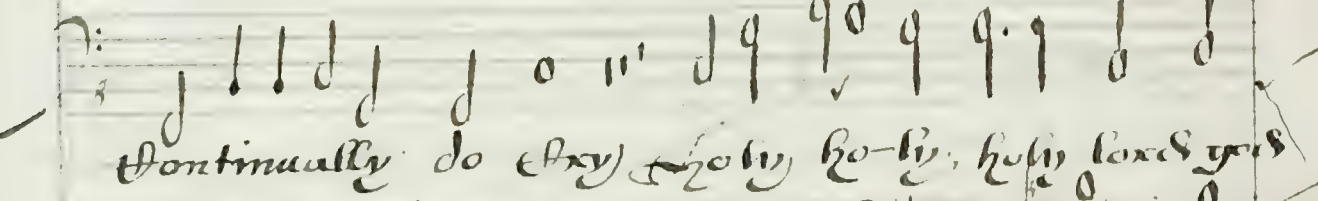 Continually do Cry, Holy, ho-ly, holy lord god